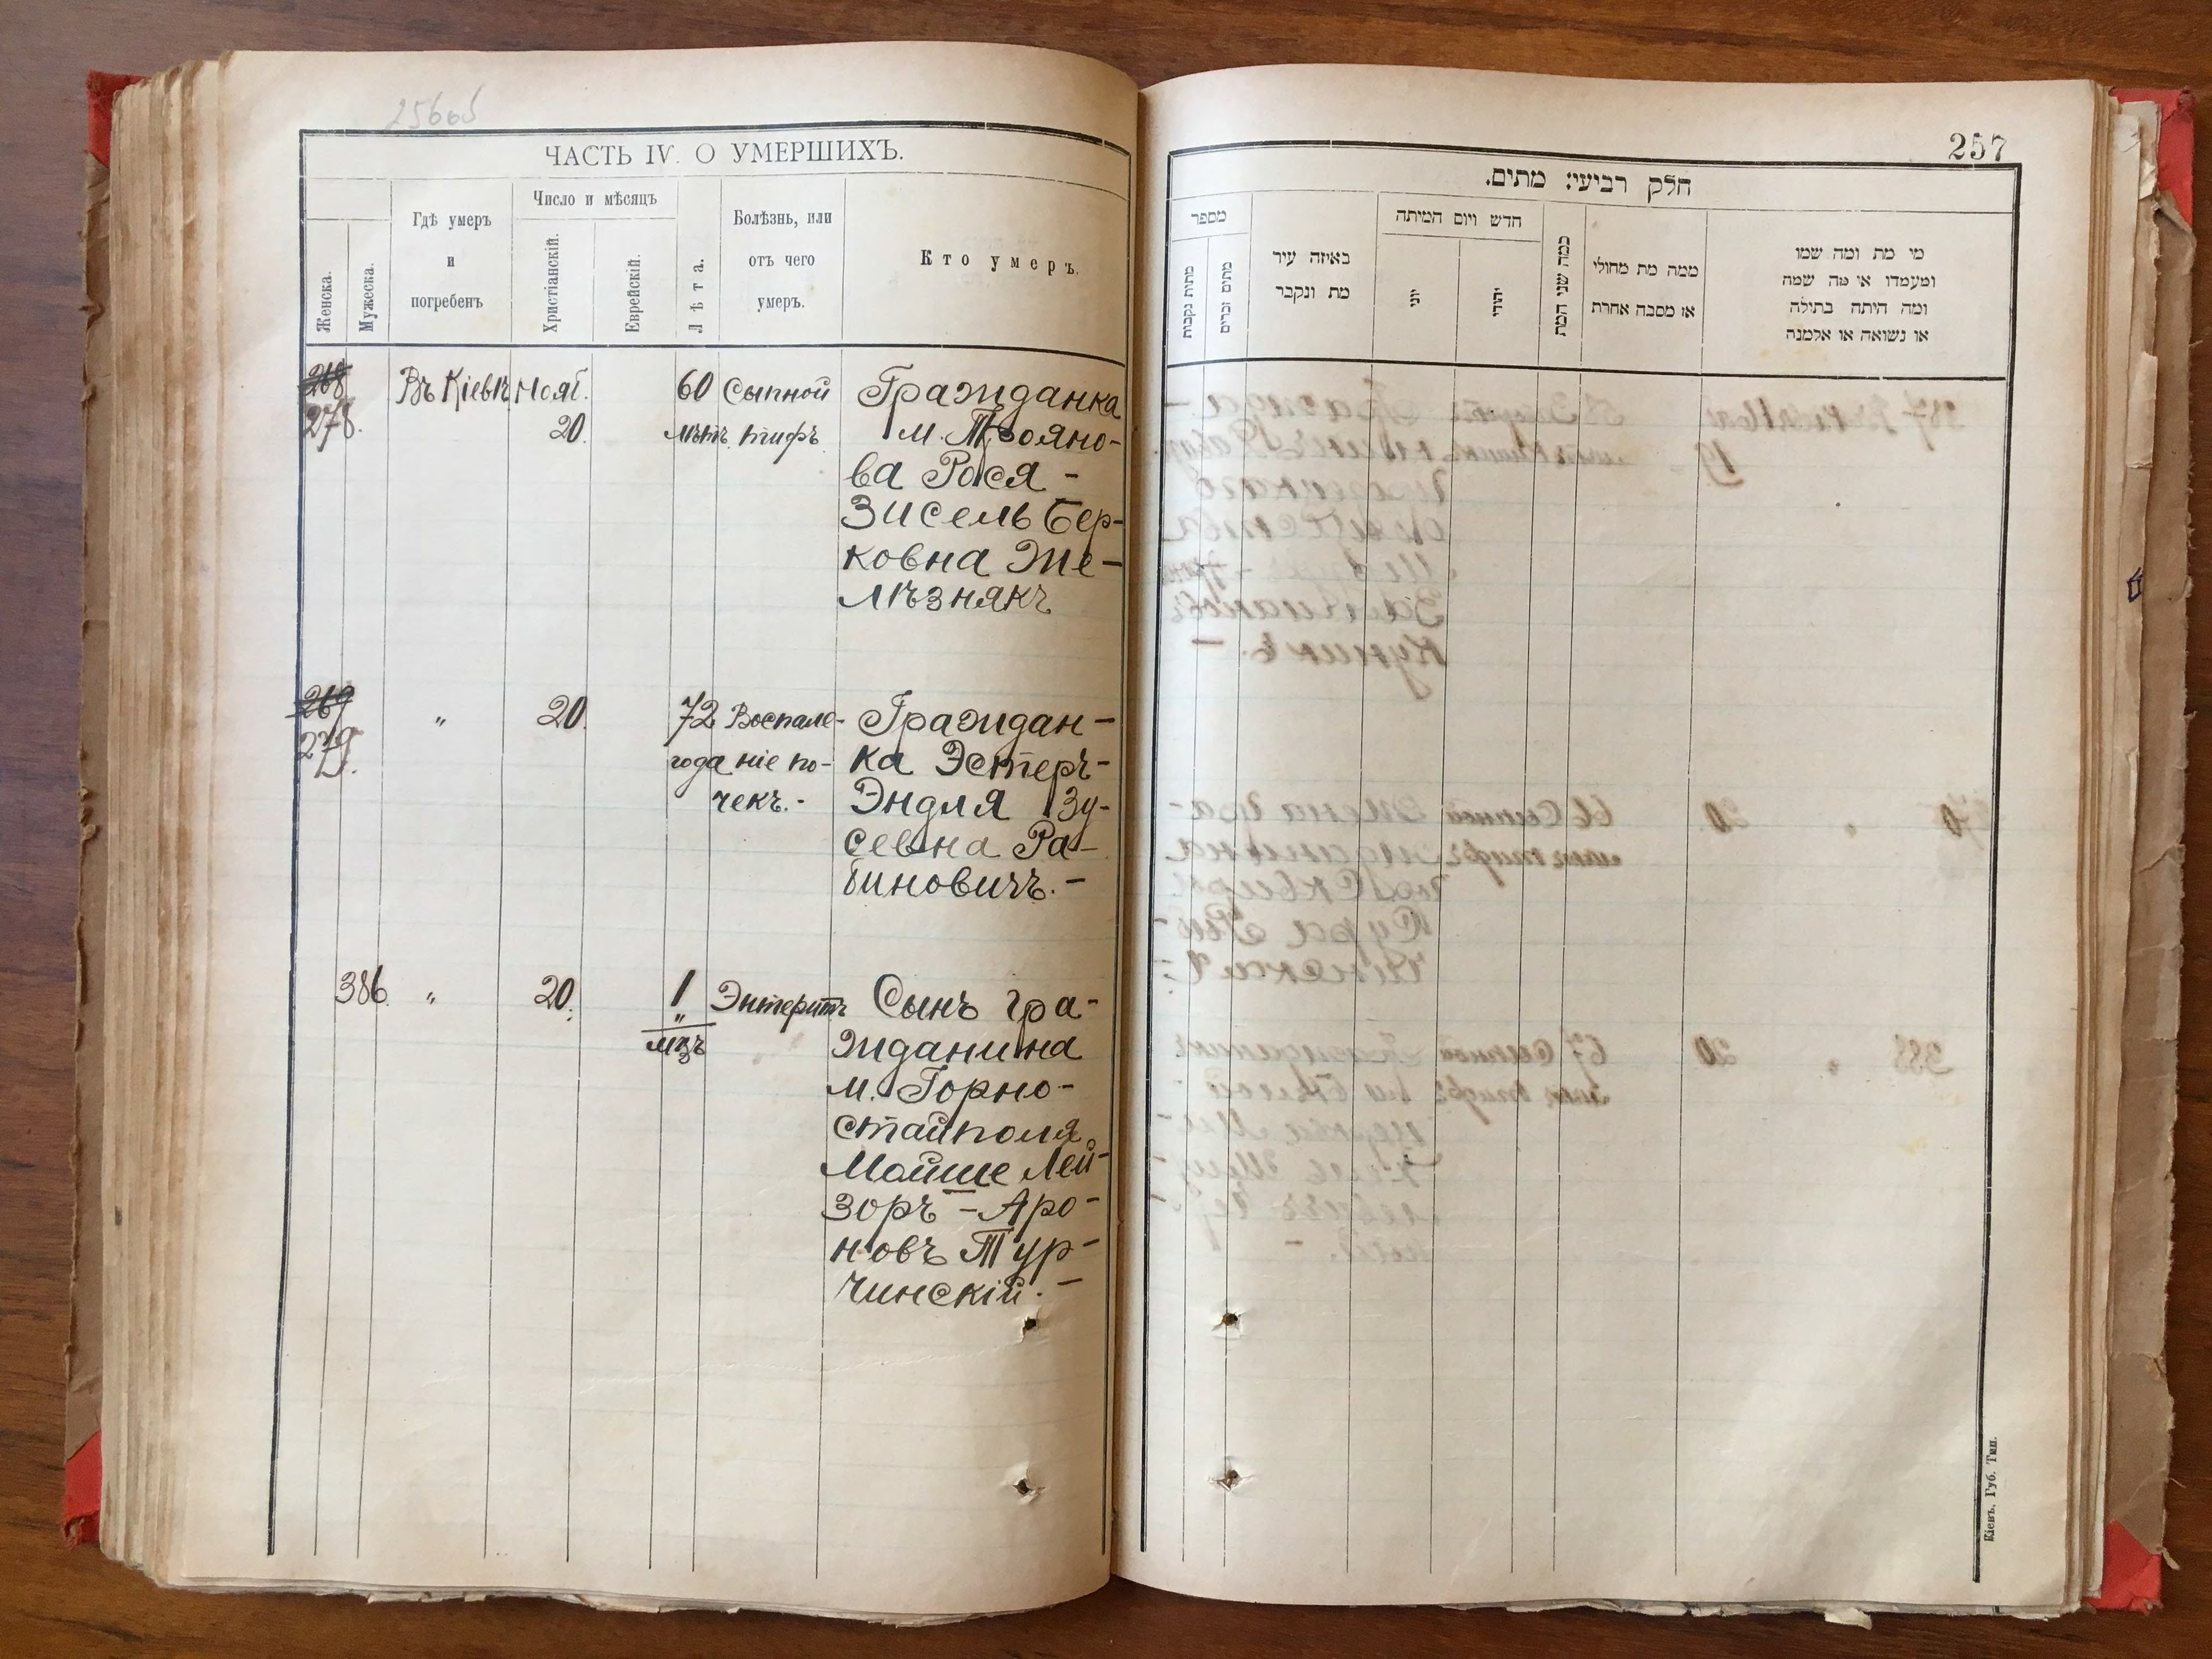 256об
ЧАСТЬ IV. О УМЕРШИХЪ.
Женска.
Мужеска.
Гдѣ умеръ
и
погребенъ
Число и мѣсяцъ
Христіанскій.
Еврейскій.
Лѣта.
Болѣзнь, или
отъ чего
умеръ.
Кто умеръ.
268
278.
Въ Кіевѣ
Нояб.
20.
60
лѣтъ
Сыпной
тифъ
Гражданка
м. Трояно-
ва Рося -
Зисель Бер-
ковна Же-
лѣзнякъ
269
279.
"
20.
72
года
Воспале-
ніе по-
чекъ. -
Граждан-
ка Эстеръ-
Эндля Зу-
севна Ра-
биновичъ. -
386.
"
20.
1
"
мѣ
Энтеритъ
Сынъ гра-
жданина
м. Горно-
стайполя
Мойше Лей-
зоръ - Аро-
новъ Тур-
чинскій. -
257
חלק רביעי: מתים.
מספר
מתות נקבות
מתים זכרים
באיזה עיר
מת ונקבר
חדש ויום המיתה
יוני
יהודי
כמה שני המת
ממה מת מחולי
או מסבה אחרת
מי מת ומה שמו
ומעמדו או מה שמה
ומה היתה בתילה
או נשואה או אלמנה
Кіевъ. Губ. Тип.